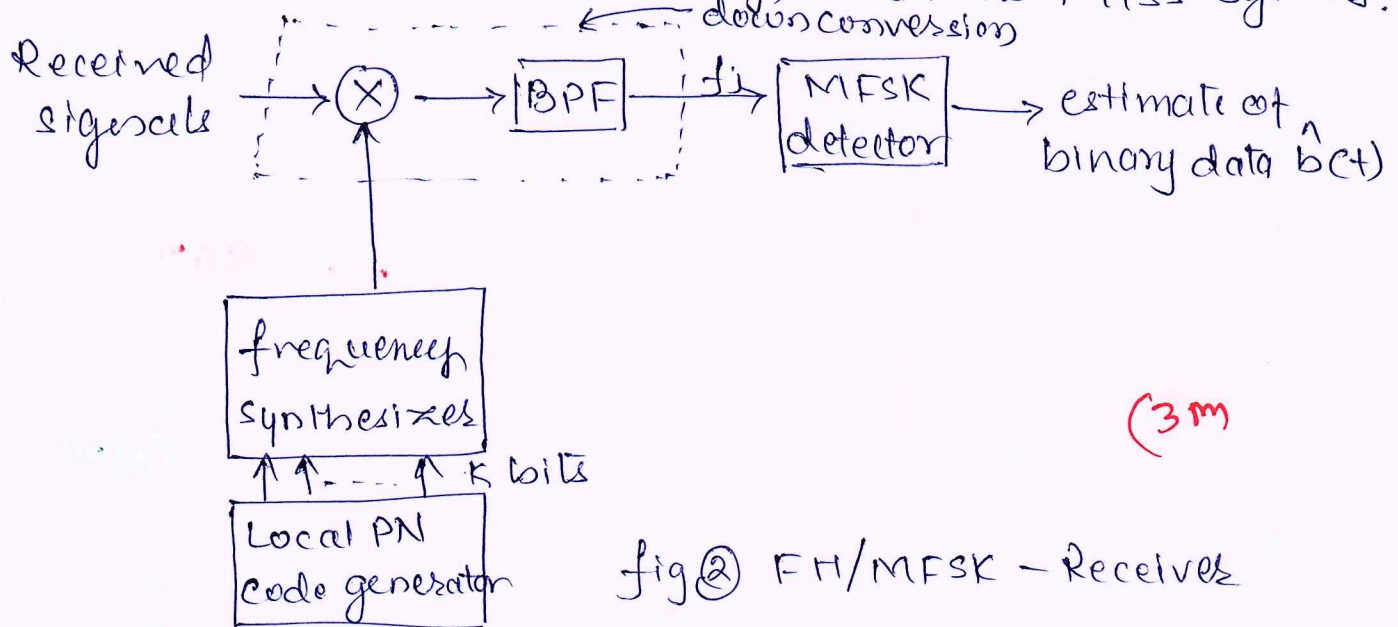 down conversion
Received
signals
X
BPF
fi
MFSK
detector
estimate of
binary data b̂(t)
frequency
synthesizer
K bits
Local PN
code generator
(3m
fig ② FH/MFSK - Receiver